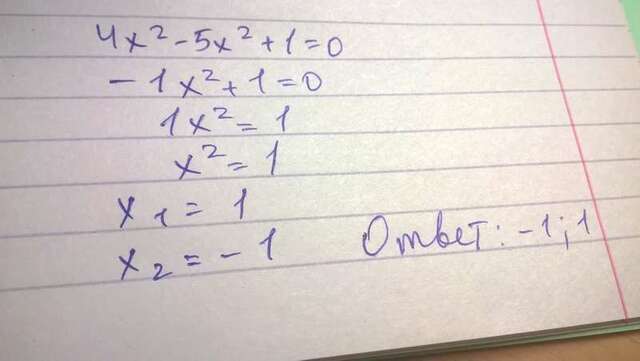 4x² - 5x² + 1 = 0
- 1x² + 1 = 0
1x² = 1
x² = 1
x₁ = 1
x₂ = - 1
Ответ: -1; 1